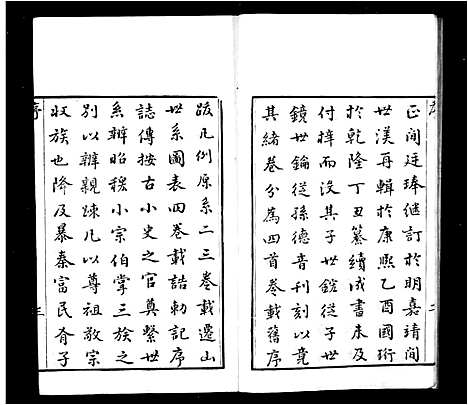 正間廷琫继訂於明嘉靖間
世渼再輯於康熙乙酉國珩
於乾隆丁丑纂续成書未及
付梓而没其子世錠從子世
鏡世鑰從孫德音刊刻以竟
其緒卷分為四首卷載舊序
跋凡例原系二三卷載遷山
世系圖表四卷載誥勅記序
誌傳按古小史之官奠繫世
系辨昭穆小宗伯掌三族之
别以辨親疎凡以尊祖敬宗
收族也降及暴秦富民有子
序
三